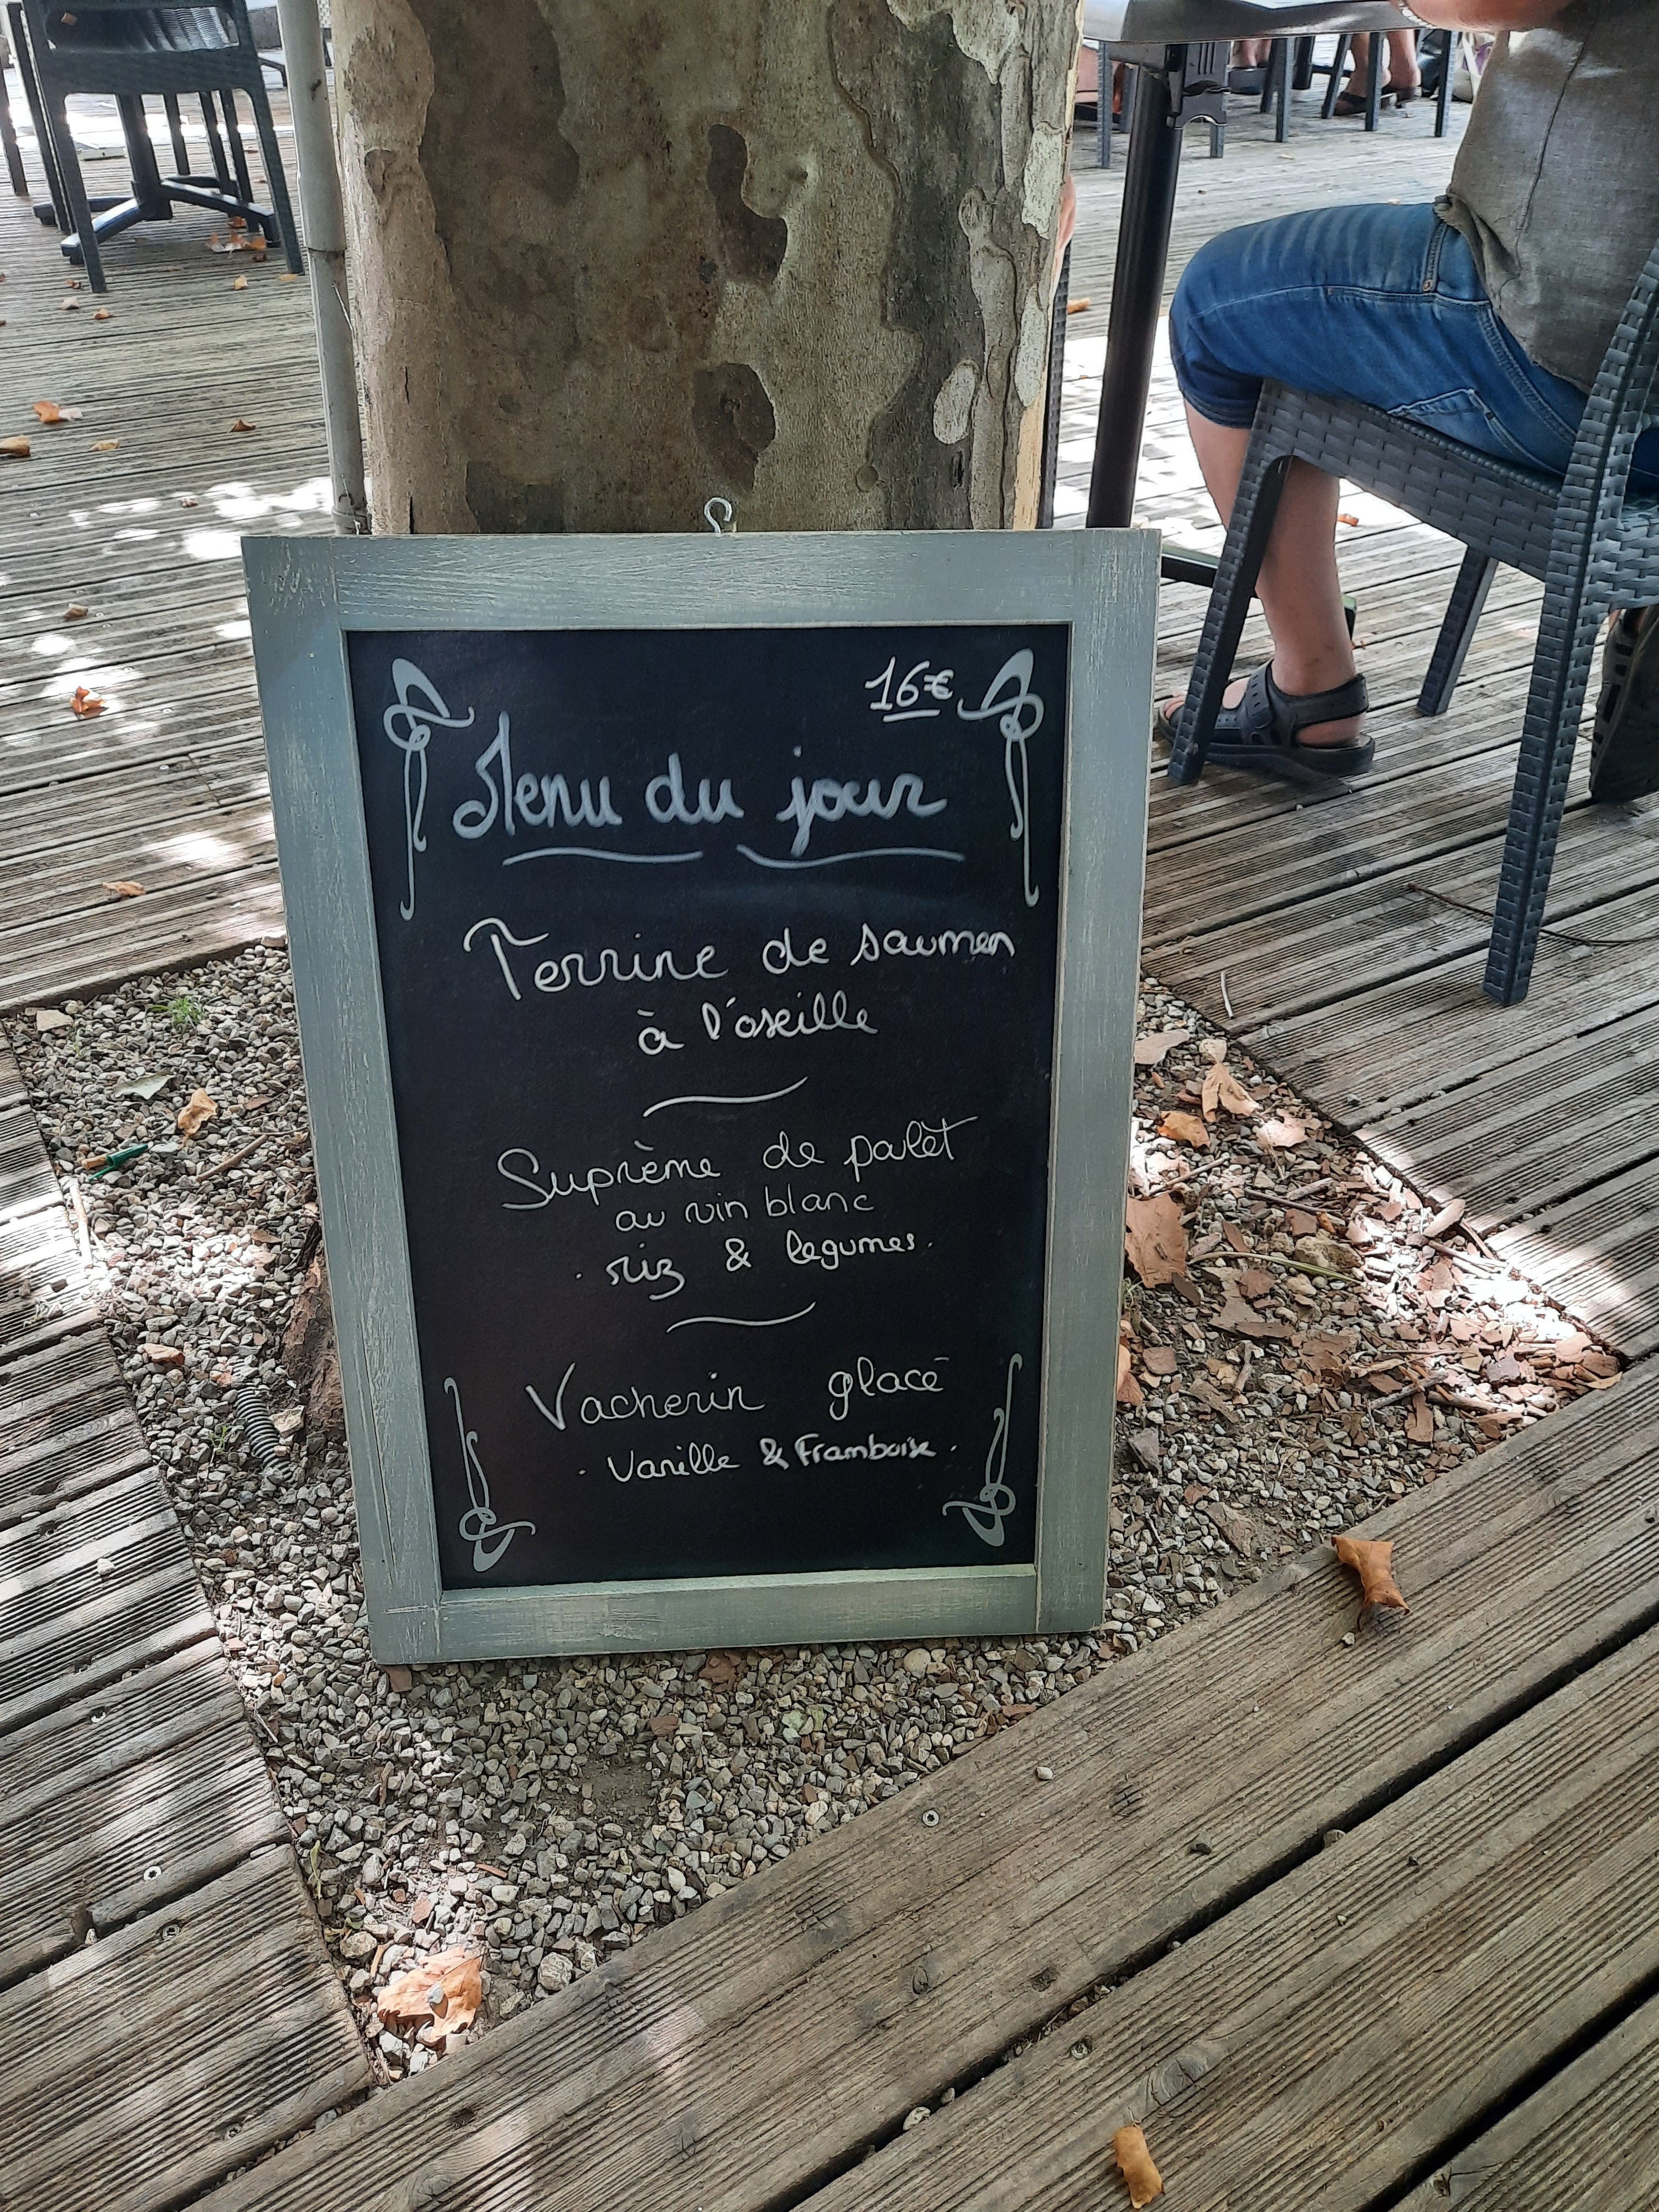 16€
Menu du jour
Terrine de saumon
à l'oseille
Suprème de poulet
au vin blanc
. riz & légumes.
Vacherin glacé
. Vanille & Framboise.